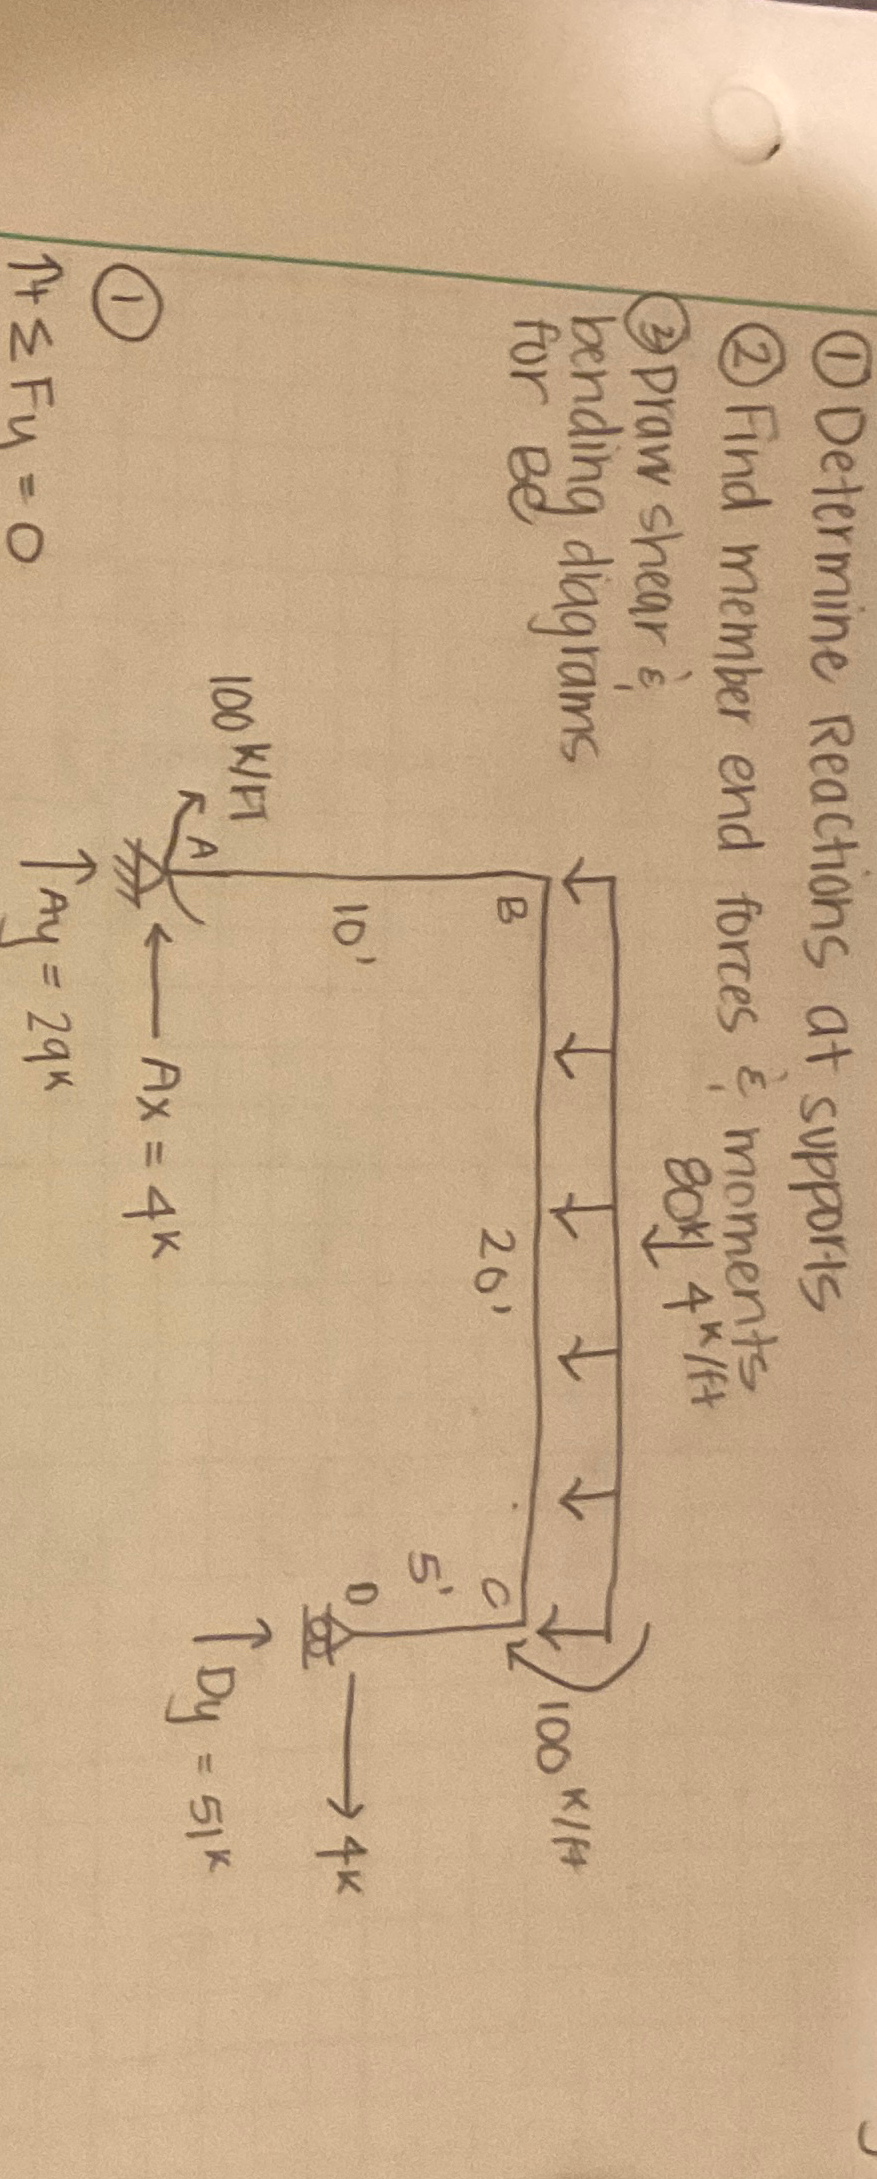 ① Determine Reactions at supports
② Find member end forces & moments
③ Draw shear &
bending diagrams
for BC
80K↓ 4ᴷ/ft
100ᴷ/ft
B
C
20'
10'
5'
D
4K
100ᴷ/Ft
A
Ax = 4ᴷ
Ay = 29ᴷ
Dy = 51ᴷ
①
↑+ Σ Fy = 0